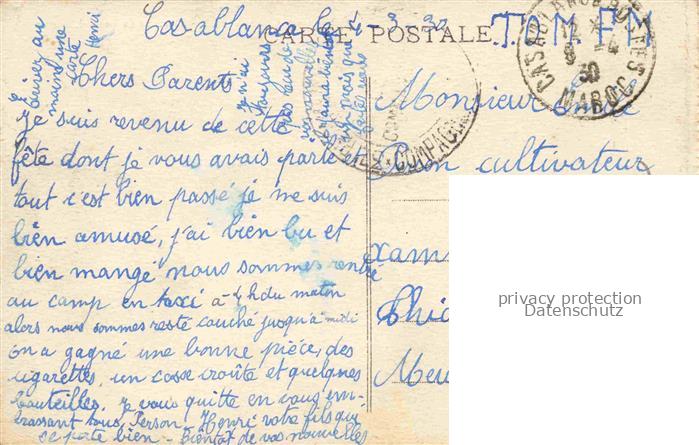 Casablanca le 4 3 30
CARTE POSTALE
T.O.M. F M
CASABLANCA POSTES
30
MAROC
COMPAGNIE
Envoyer au
moins une
carte
Henri
Chers Parents
je n'ai
toujours
pas eu de
vos nouvelles
Je suis revenu de cette
fête dont je vous avais parlé
tout c'est bien passé je me suis
bien amusé, j'ai bien bu et
bien mangé nous sommes rentré
au camp en taxi à 4 h du matin
alors nous sommes resté couché jusqu'à midi
on a gagné une bonne pièce, des
cigarettes, un casse croûte et quelques
bouteilles. Je vous quitte en vous em-
brassant tous, Person, Henri votre fils qui
se porte bien - Bientôt de vos nouvelles
Monsieur
cultivateur
privacy protection
Datenschutz